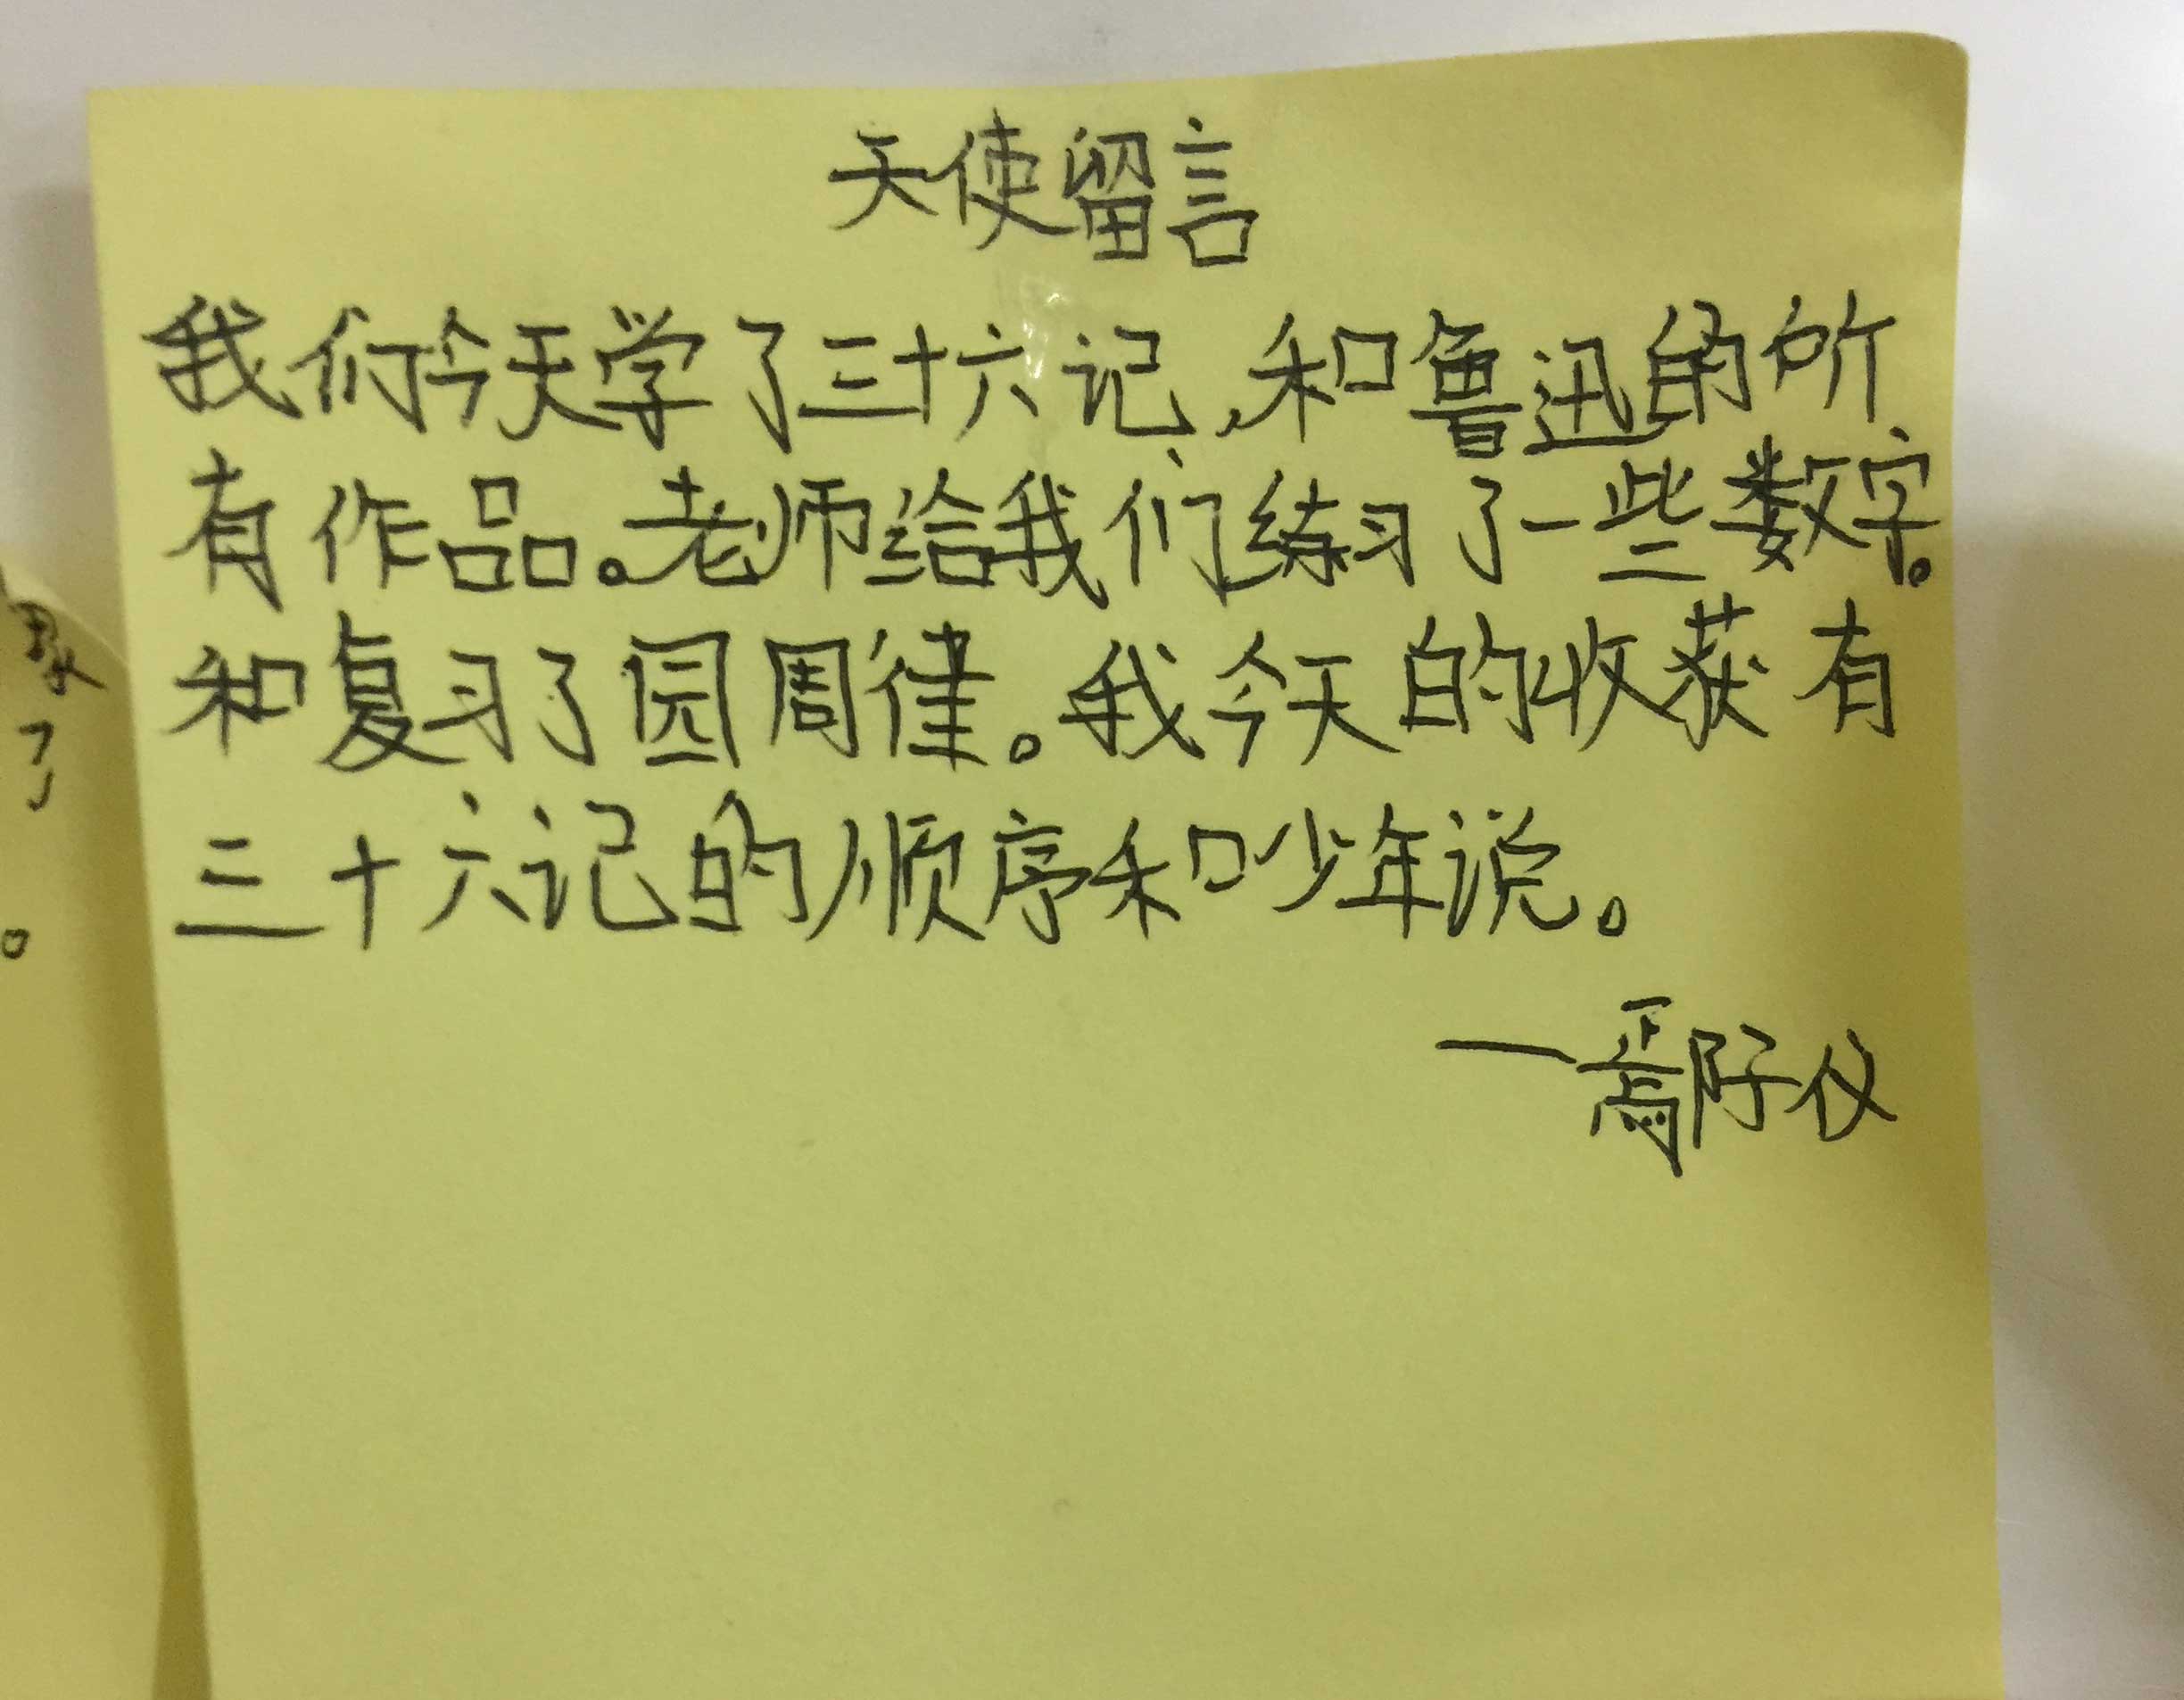 天使留言
我们今天学了三十六记,和鲁迅的所
有作品。老师给我们练习了一些数字。
和复习了园周律。我今天的收获有
三十六记的顺序和少年说。
一鄢子仪
了
。